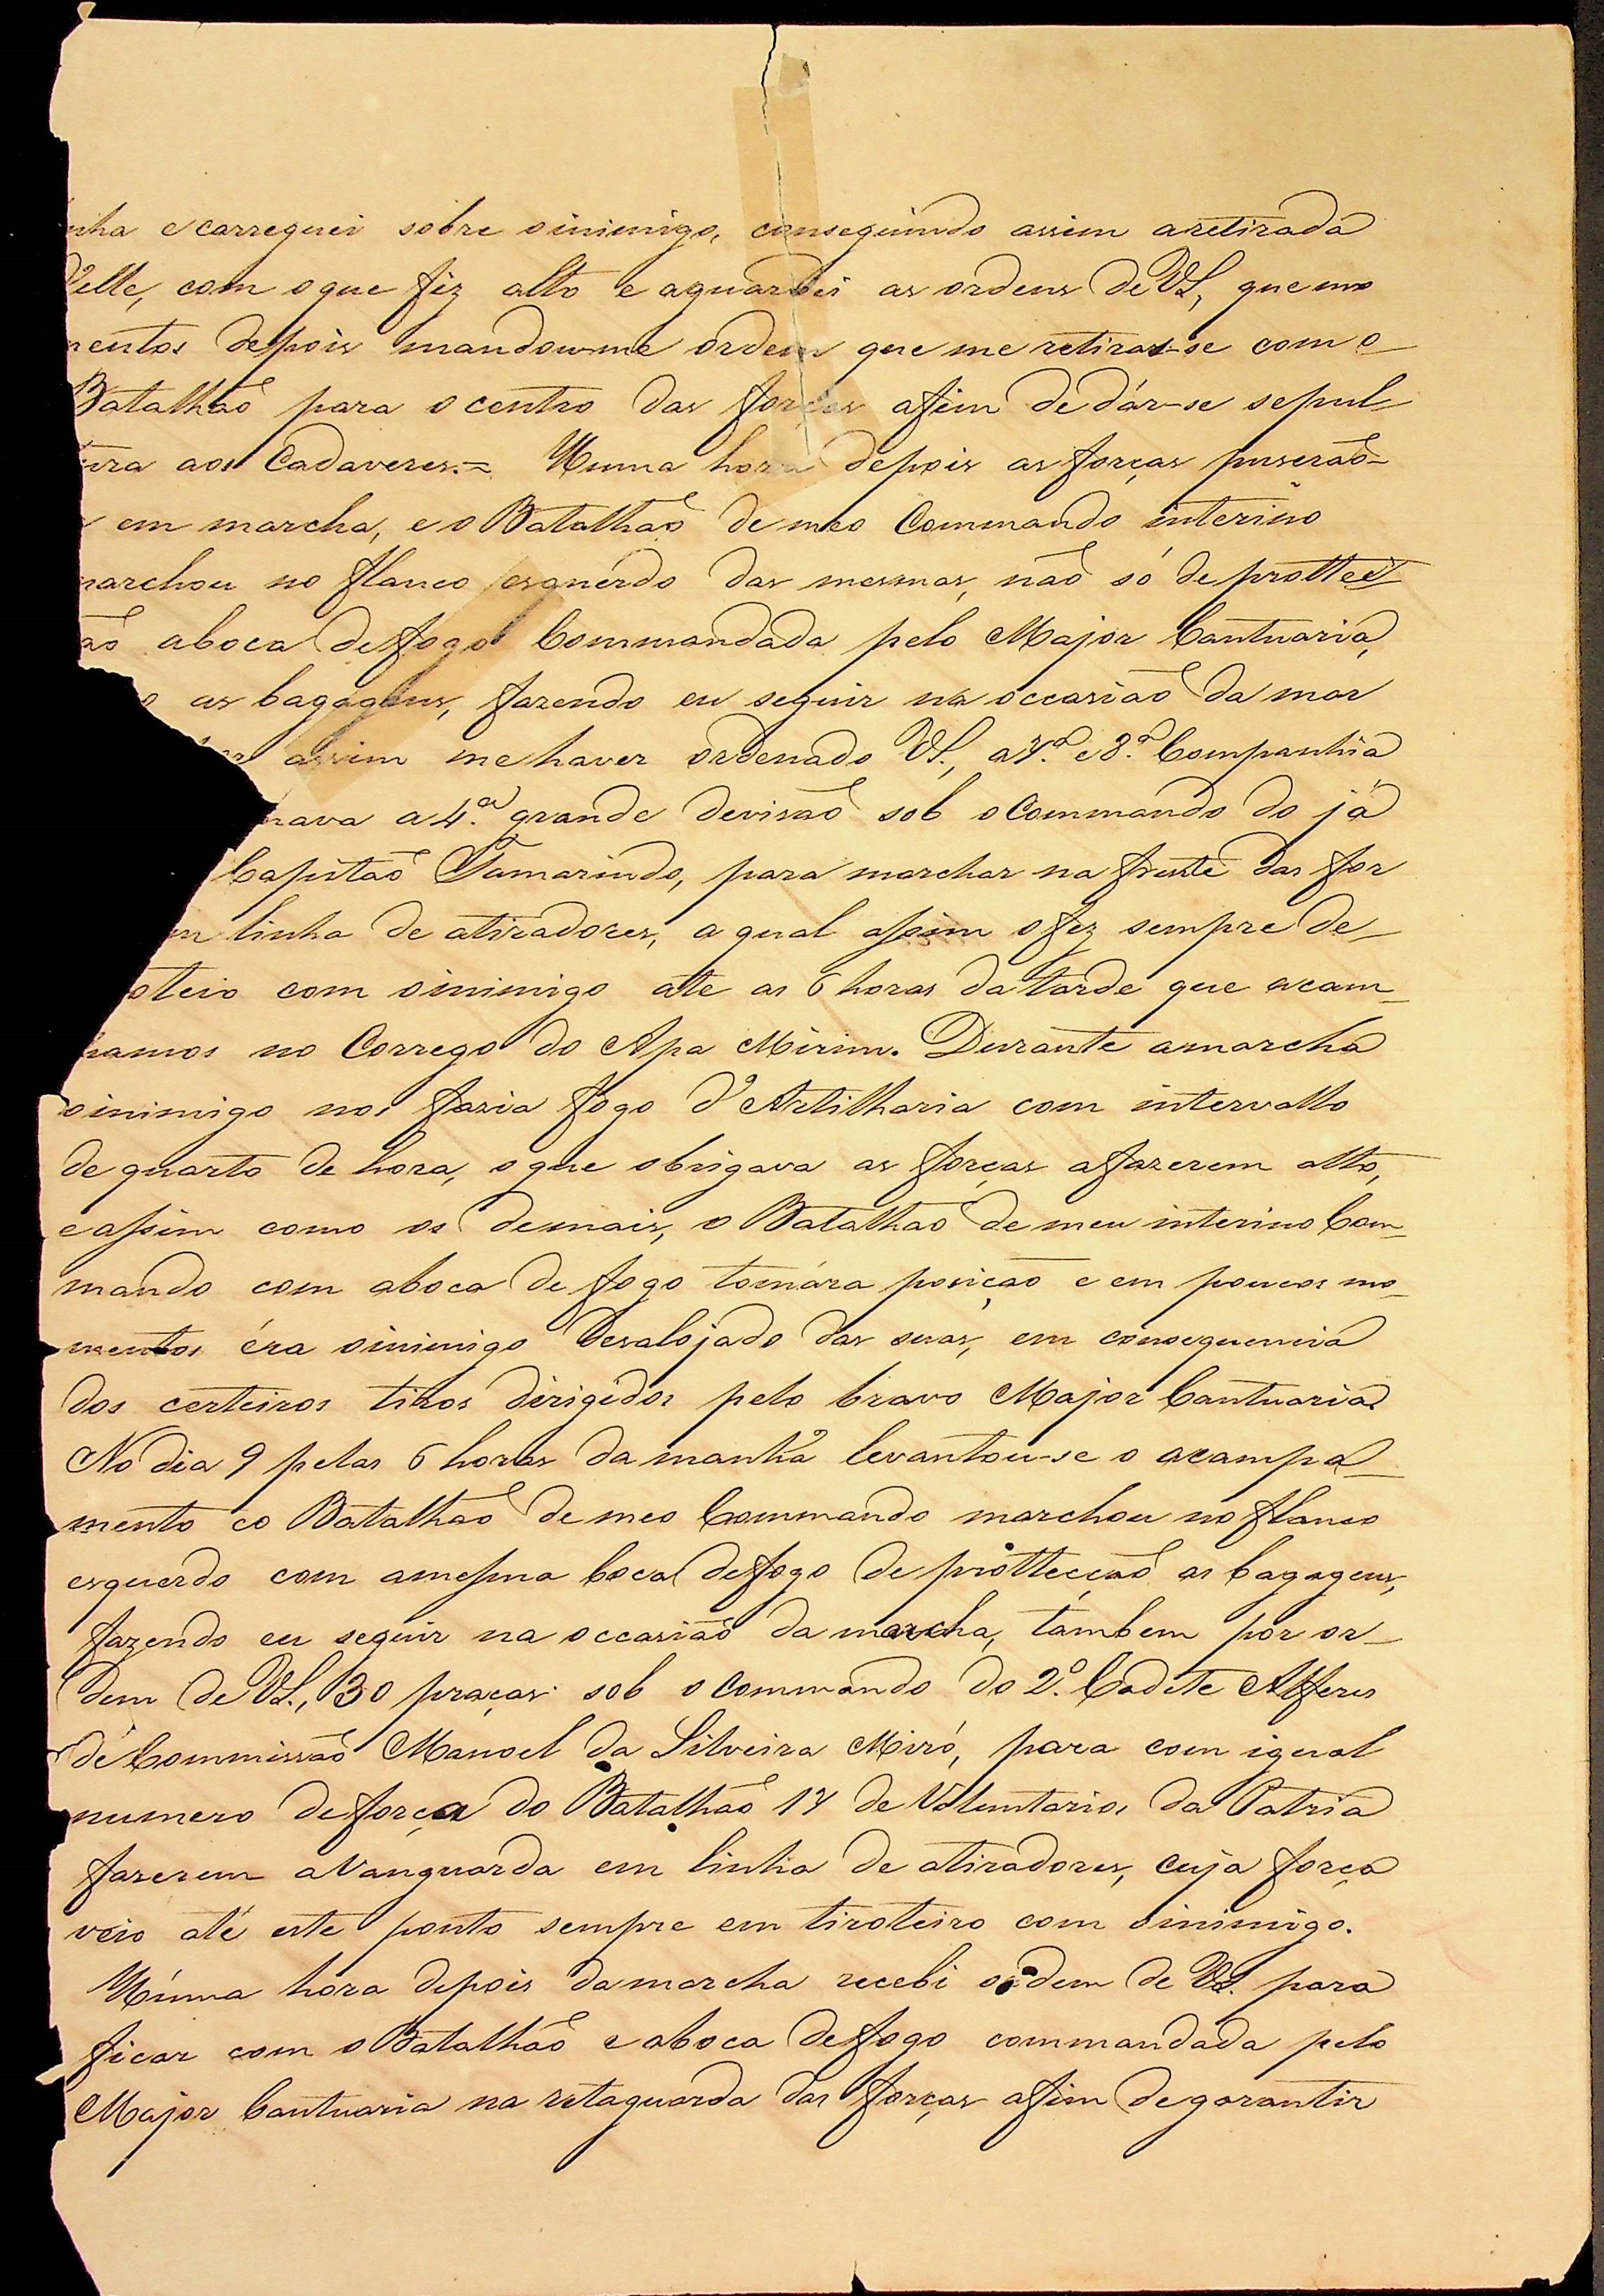 nha e carreguei sobre o inimigo, conseguindo assim a retirada
d'elle, com o que fiz alto e aguardei as ordens de VS., que mo
mentos depois mandou-me ordem que me retirar-se com o
Batalhaõ para o centro das forças afim de dár-se sepul-
tura aos Cadaveres.= Numa hora depois as forças puseraõ-
em marcha, e o Batalhaõ de meo Commando interino
marchou no flanco esquerdo das mesmas, naõ só de prottec
aõ a boca de fogo Commandada pelo Major Cantuaria,
o as bagagens, fazendo eu seguir na occasiaõ da mar
assim me haver ordenado VS., a 7ª. e 8ª. Companhia
nava a 4ª. grande devisaõ sob o Commando do já
Capitaõ Tamarindo, para marchar na frente das for
m linha de atiradores, a qual assim o fez sempre de-
oteio com o inimigo ate as 6 horas da tarde que acam-
hamos no Corrego do Apa Mirim. Durante a marcha
o inimigo nos fazia fogo d'Artilharia com intervallo
de quarto de hora, o que obrigava as forças a fazerem alto,
e assim como os demais, o Batalhaõ de meu interino Com-
mando com a boca de fogo tomára posiçaõ e em poucos mo-
mentos éra o inimigo desalojado das suas, em consequencia
dos certeiros tiros dirigidos pelo bravo Major Cantuaria.
No dia 9 pelas 6 horas da manhã levantou-se o acampa-
mento eo Batalhaõ de meo Commando marchou no flanco
esquerdo com a mesma boca de fogo de prottecçaõ as bagagens,
fazendo eu seguir na occasiaõ da marcha, tambem por or-
dem de VS., 30 praças sob o Commando do 2º. Cadete Alferes
de Commissaõ Manoel da Silveira Miró, para com igual
numero de força do Batalhaõ 17 de Voluntarios da Patria
fazerem a Vanguarda em linha de atiradores, cuja força
veio até este ponto sempre em tiroteiro com o inimigo.
Númma hora depois da marcha recebi ordem de VS. para
ficar com o Batalhaõ e a boca de fogo commandada pelo
Major Cantuaria na retaguarda das forças afim de garantir